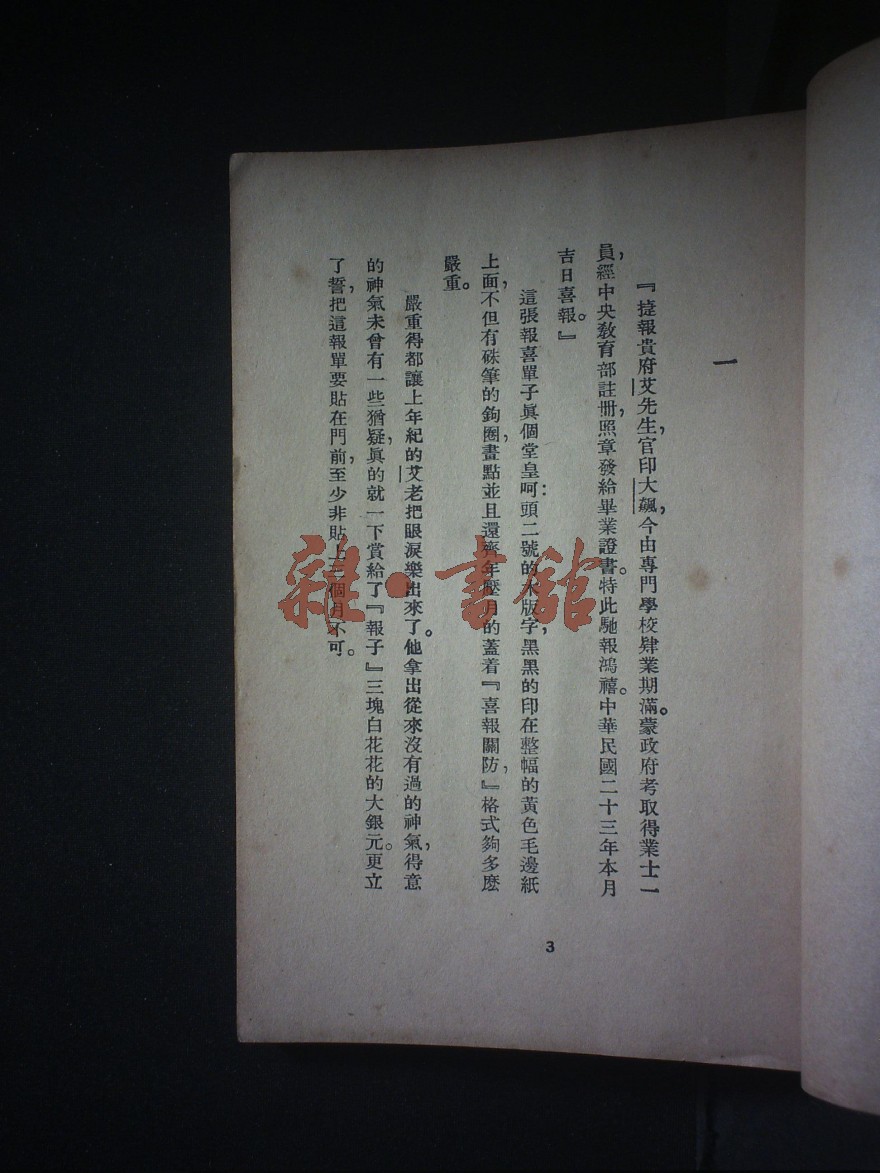 一
『捷報貴府艾先生，官印大飆，今由專門學校肄業期滿。蒙政府考取得業士一
員，經中央教育部註冊，照章發給畢業證書。特此馳報鴻禧。中華民國二十三年本月
吉日喜報。』
這張報喜單子眞個堂皇呵：頭二號的木版字，黑黑的印在整幅的黃色毛邊紙
上面，不但有硃筆的鉤圈畫點，並且還齊年壓月的蓋着『喜報關防，』格式夠多麽
嚴重。
嚴重得都讓上年紀的艾老把眼淚樂出來了。他拿出從來沒有過的神氣，得意
的神氣未曾有一些猶疑，眞的就一下賞給了『報子』三塊白花花的大銀元。更立
了誓，把這報單要貼在門前，至少非貼上三個月不可。
3
雜·書館